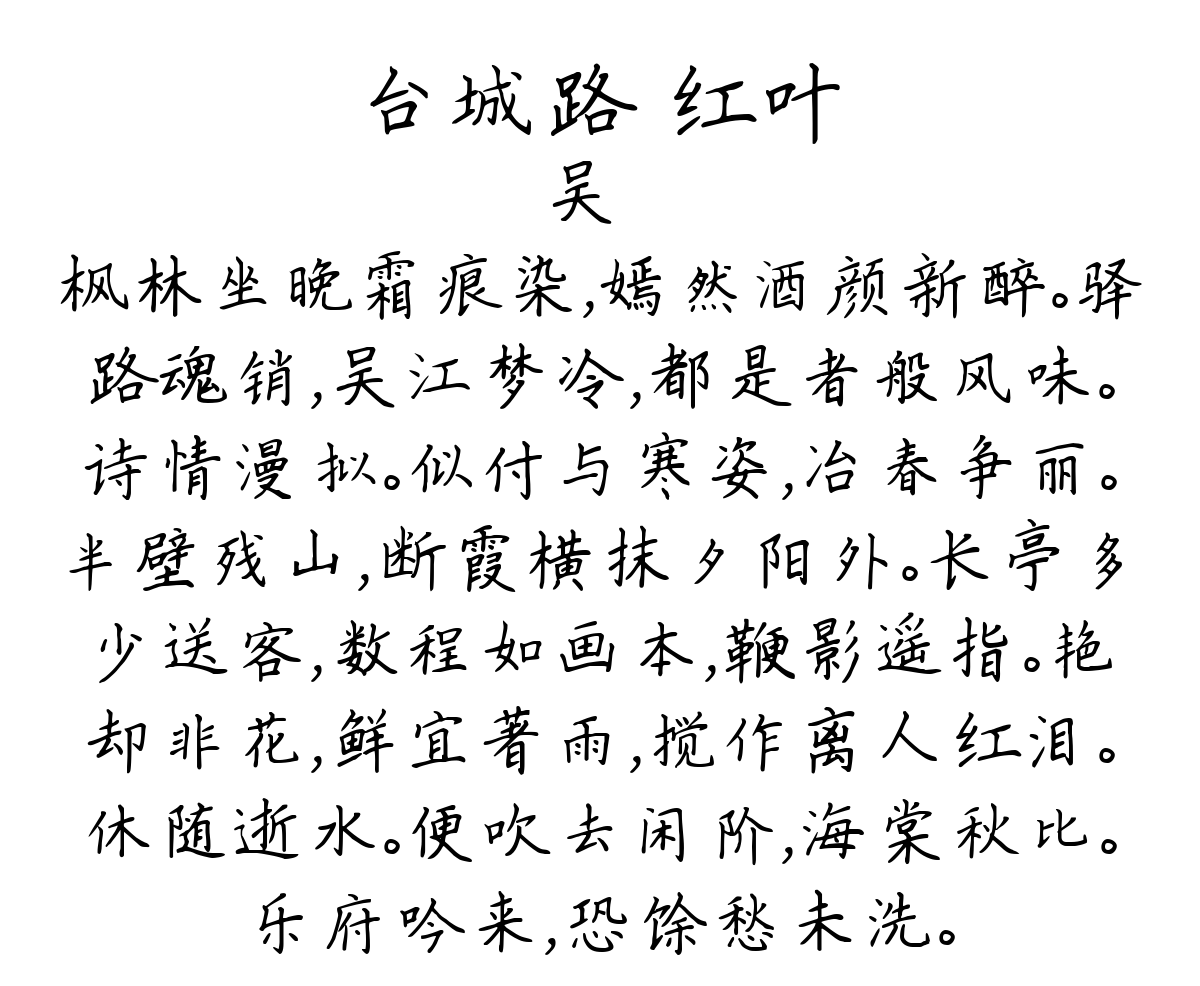 台城路 红叶
吴
枫林坐晚霜痕染,嫣然酒颜新醉。驿
路魂销,吴江梦冷,都是者般风味。
诗情漫拟。似付与寒姿,冶春争丽。
半壁残山,断霞横抹夕阳外。长亭多
少送客,数程如画本,鞭影遥指。艳
却非花,鲜宜著雨,搅作离人红泪。
休随逝水。便吹去闲阶,海棠秋比。
乐府吟来,恐馀愁未洗。